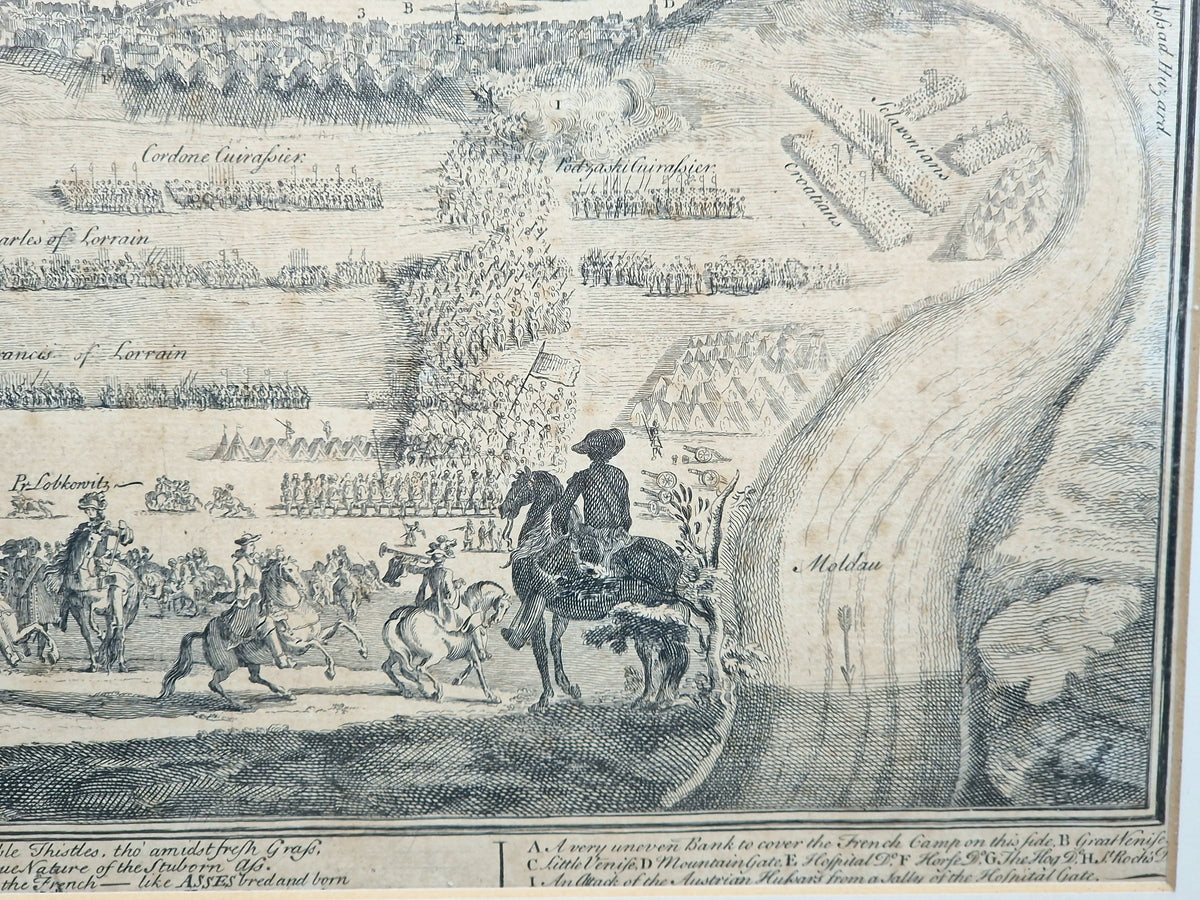 3 B D
E
F
I
Cordone Cuiraſsier.
Podzaski Cuiraſsier.
Sclavonians
Croatians
arles of Lorrain
rancis of Lorrain
Pr. Lobkowitz
Moldau
Hizard
ble Thistles, tho' amidst fresh Graſs,
ue Nature of the Stuborn Aſs.
the French — like ASSES bred and born
A. A very uneven Bank to cover the French Camp on this side, B Great Veniſe
C. Little Veniſe, D Mountain Gate, E Hospital Do. F Horſe Do. G. The Hog Do. H. St. Roch's D
I. An Attack of the Austrian Huſsars from a Sally of the Hospital Gate.